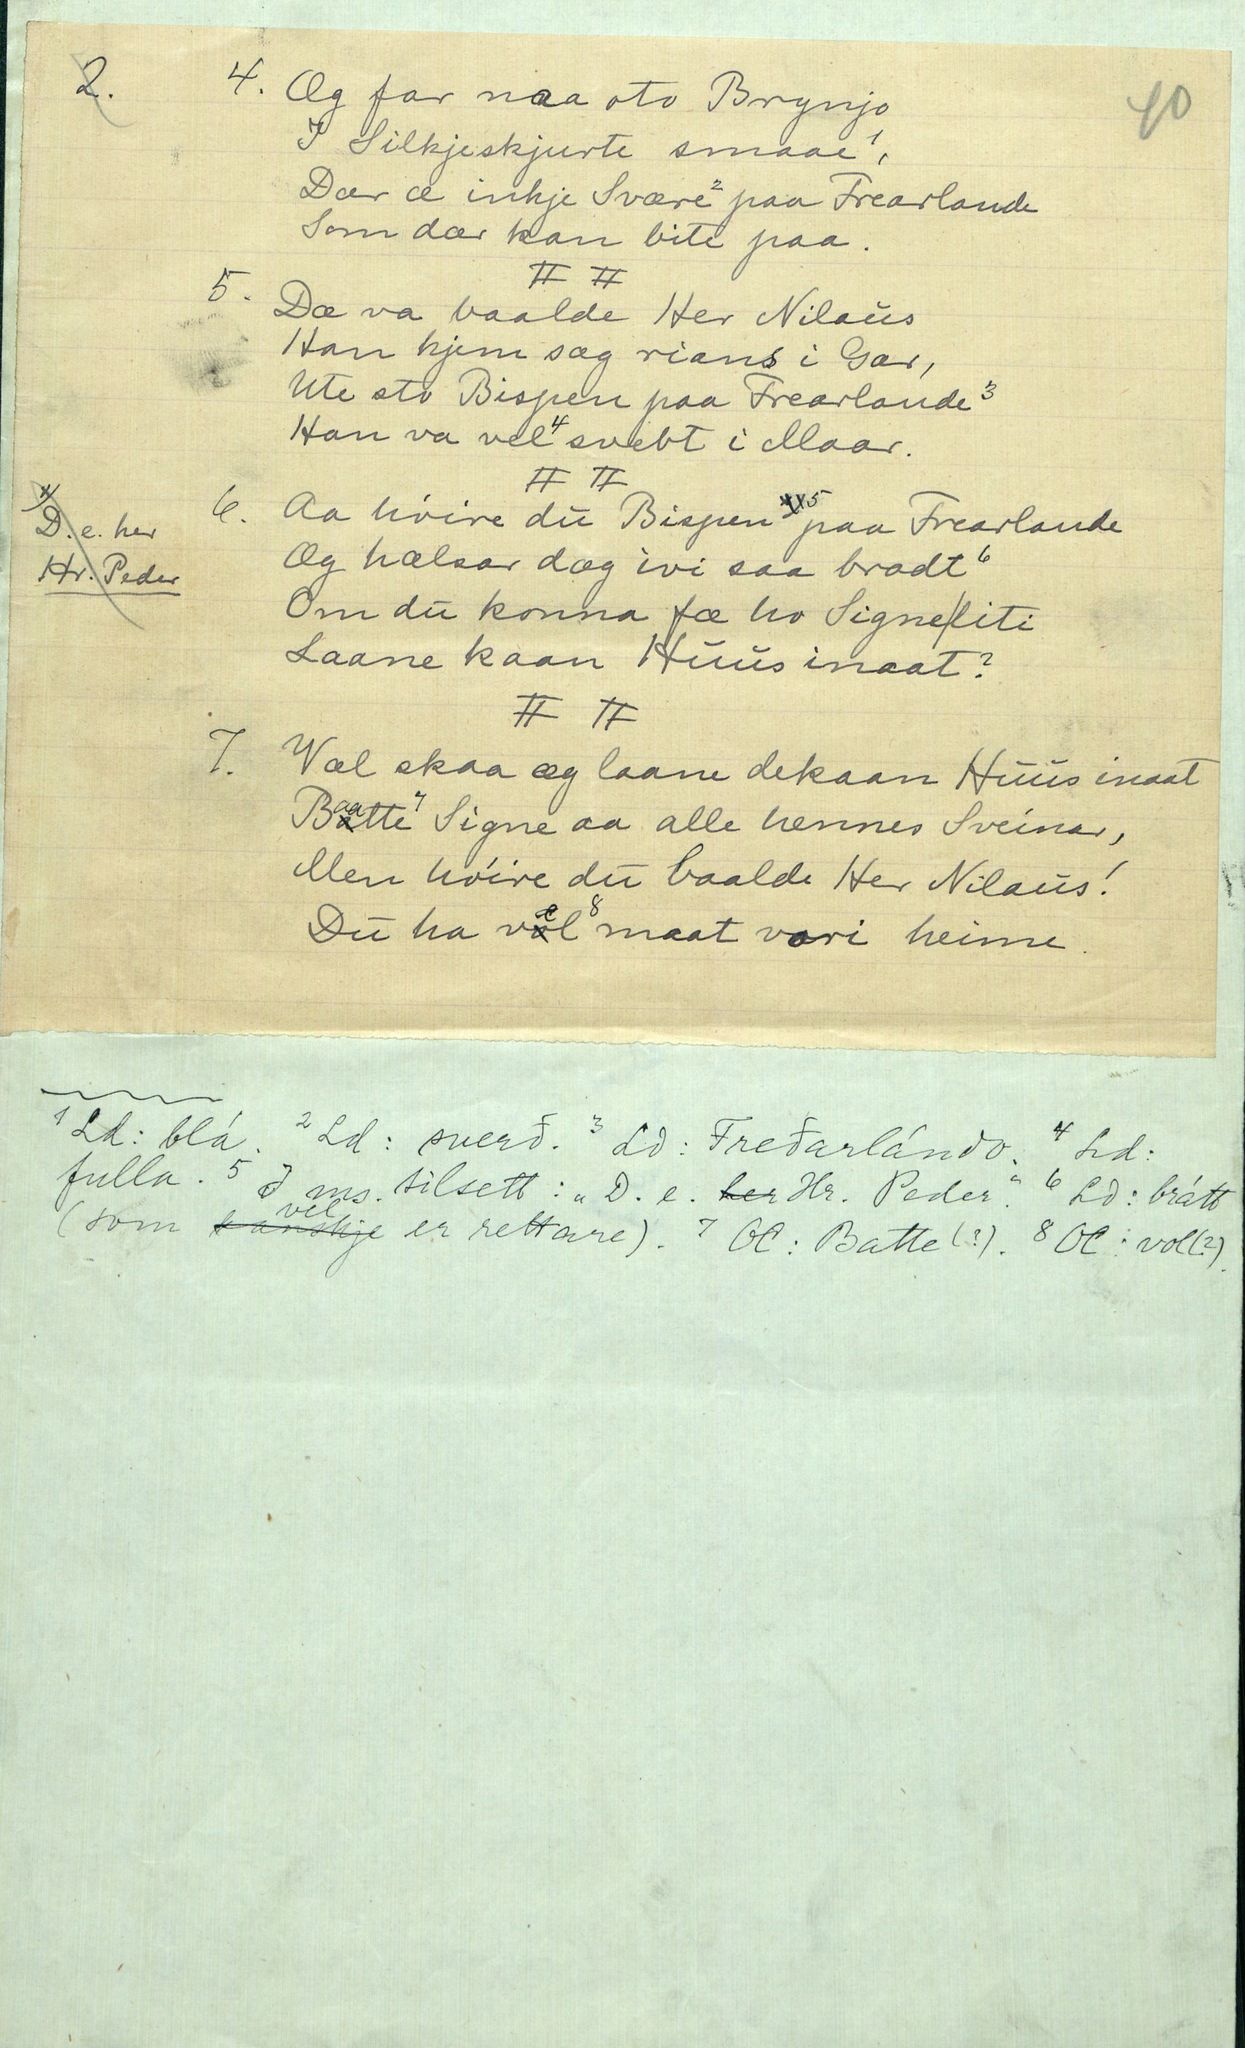 2.
40
4. Og far naa oto Brynjo
I Silkjeskjurte smaae¹,
Dær æ inkje Svære² paa Frearlande
Som dær kan bite paa.
# #
5. Dæ va baalde Her Nilaŭs
Han kjem sæg rians i Gar,
Ute sto Bispen paa Frearlande³
Han va vel⁴ svebt i Maar.
# #
x) D. e. her
Hr. Peder
6. Aa høire dŭ Bispen xx5 paa Frearlande
Og hælsar dæg ivi saa bradt⁶
Om dŭ konna fæ ho Signe liti
Laane kaan Hŭŭs inaat?
# #
7. Wæl skaa æg laane dekaan Hŭŭs inaat
Baatte⁷ Signe aa alle hennes Sveinar,
Men høire dŭ baalde Her Nilaŭs!
Dŭ ha vel⁸ maat vori heime.
¹ Ld: blá. ² Ld: sverð. ³ Ld: Freðarlándo. ⁴ Ld:
fulla. ⁵ I ms. tilsett: „D. e. her Hr. Peder." ⁶ Ld: brátt
(som kanskje vel er rettare). ⁷ OC: Batte(?). ⁸ OC: vol(?).